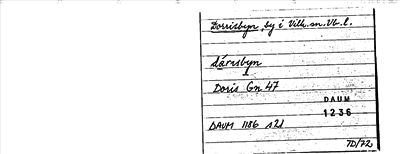 Dorrisbyn, by i Vilh. sn. Vb. l.
dárrsbyn
Doris Gn 47
DAUM
1236
DAUM 1186 s21
TD/72